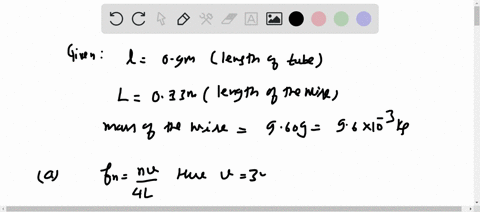 Given: l = 0.9m (length of tube)
L = 0.33m (length of the wire)
mass of the wire = 9.60g = 9.6 × 10⁻³ kg
(a) fn = nv/4L Here v = 34
A